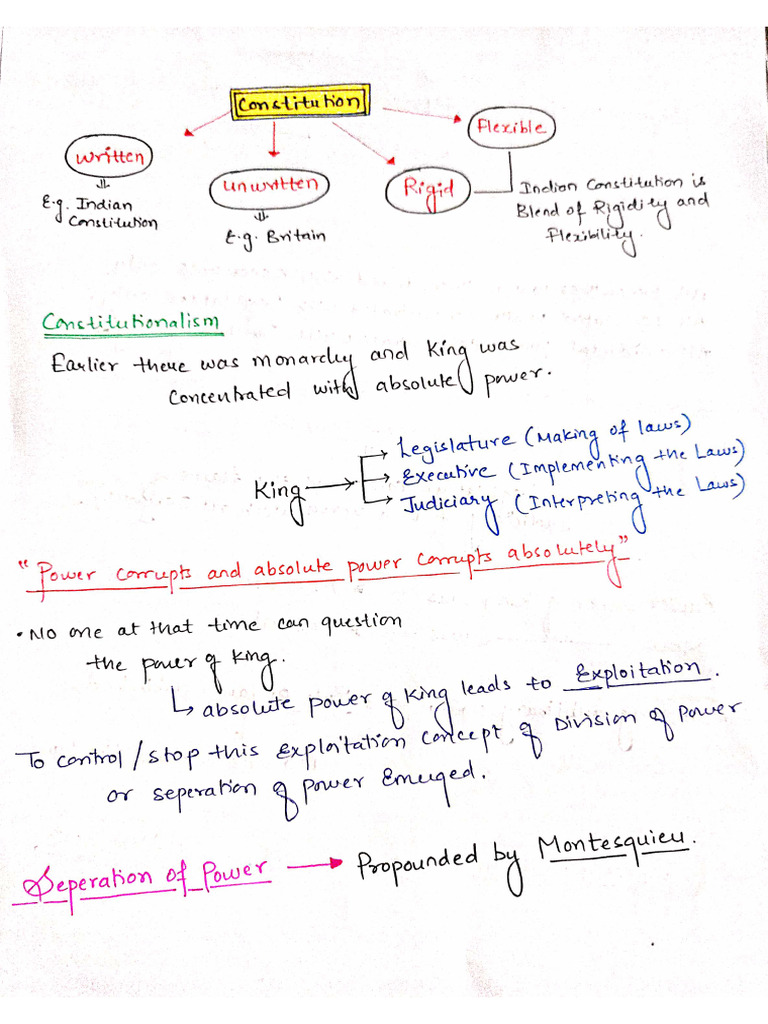 Constitution
Written
E.g. Indian
Constitution
unwritten
E.g. Britain
Rigid
Flexible
Indian Constitution is
Blend of Rigidity and
Flexibility.
Constitutionalism
Earlier there was monarchy and King was
concentrated with absolute power.
King
Legislature (Making of laws)
Executive (Implementing the Laws)
Judiciary (Interpreting the Laws)
"Power corrupts and absolute power corrupts absolutely"
• No one at that time can question
the power of King.
absolute power of King leads to Exploitation.
To control/stop this exploitation concept of Division of Power
or seperation of power Emerged.
Seperation of Power → Propounded by Montesquieu.